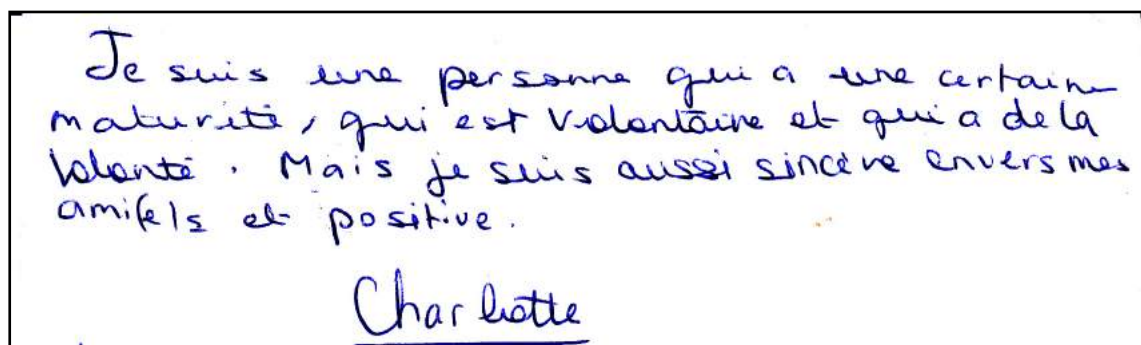 Je suis une personne qui a une certaine
maturité, qui est volontaire et qui a de la
volonté. Mais je suis aussi sincère envers mes
ami(e)s et positive.
Charlotte